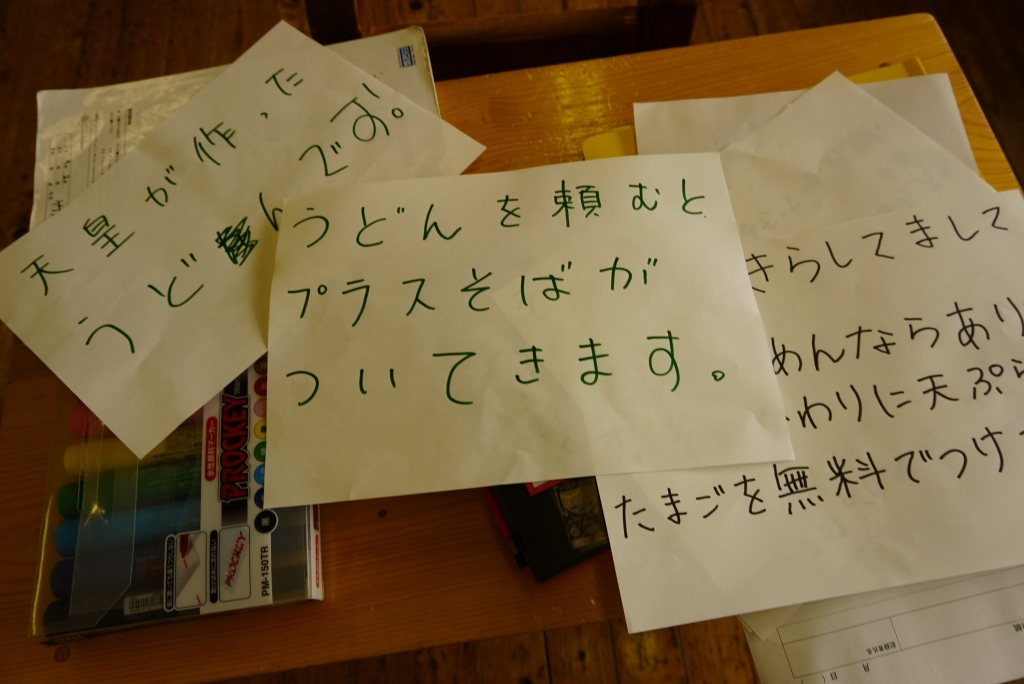 天皇が作った
うどんです。
うどんを頼むと
プラスそばが
ついてきます。
きらしてまして
めんならあり
わりに天ぷら
たまごを無料でつけ
水性顔料マーカー
PROCKEY
PROCKEY
PM-150TR